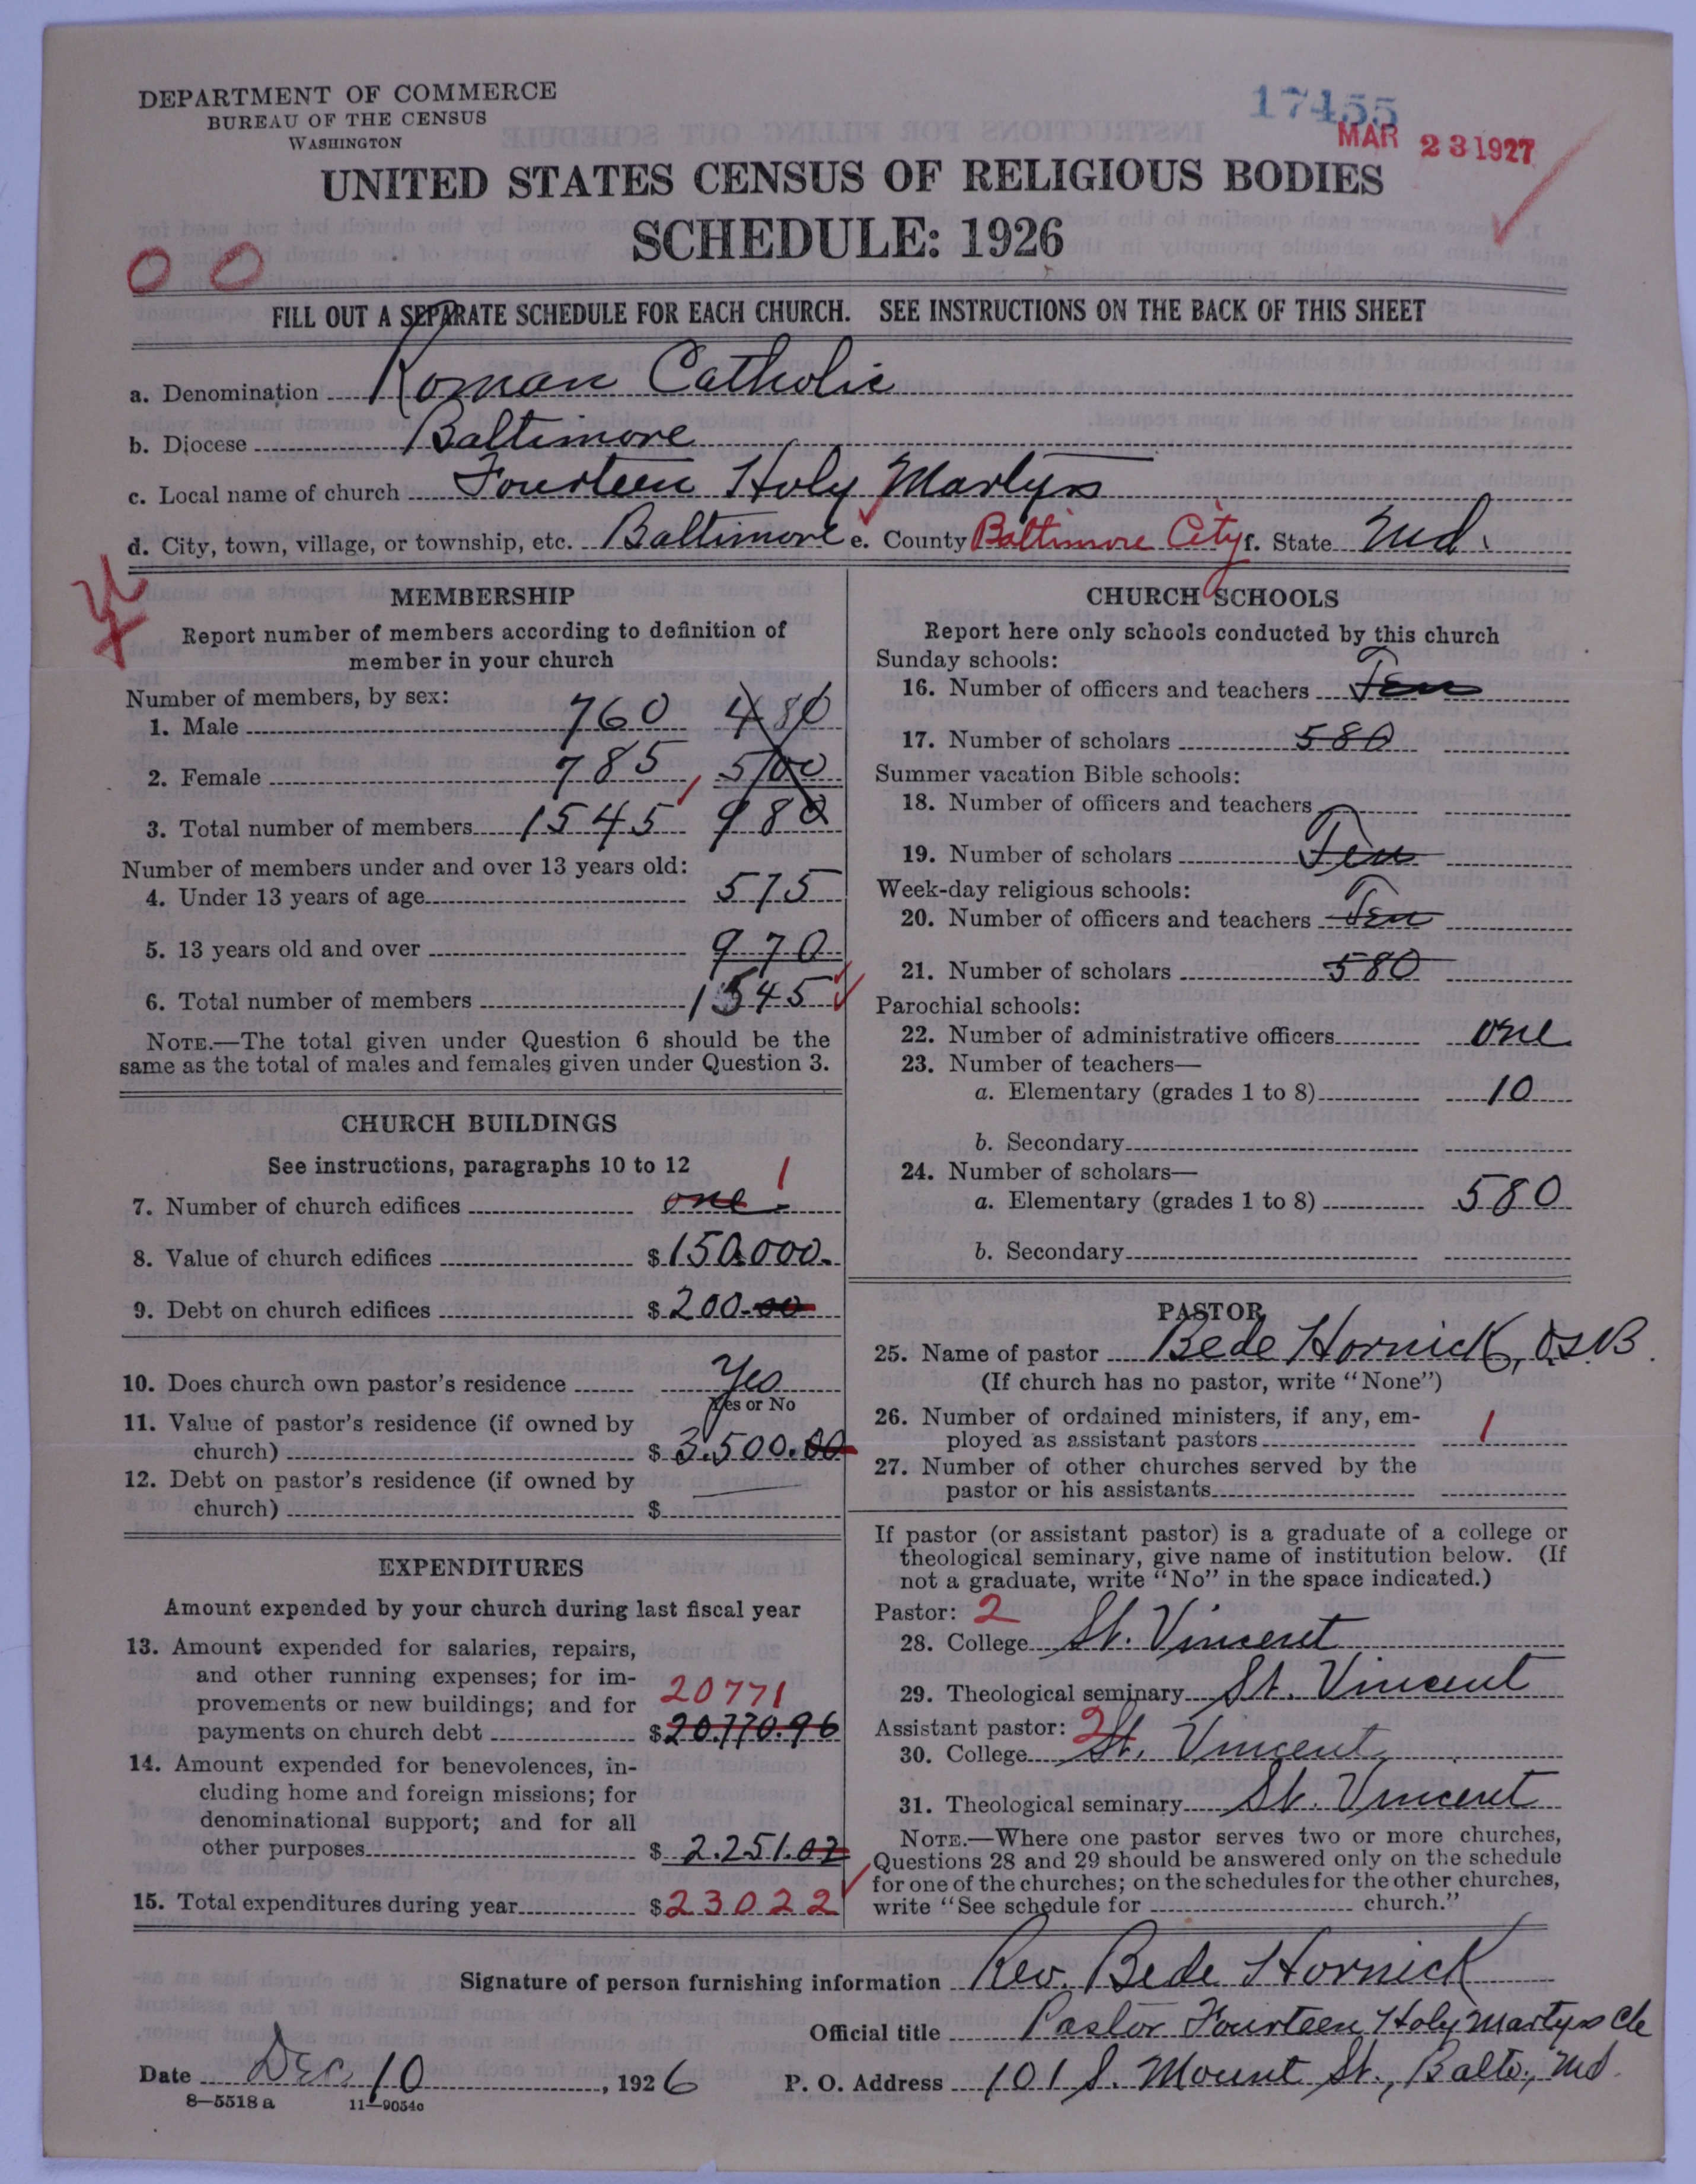 DEPARTMENT OF COMMERCE
BUREAU OF THE CENSUS
WASHINGTON
17455
MAR 23 1927
UNITED STATES CENSUS OF RELIGIOUS BODIES
SCHEDULE: 1926
0 0
FILL OUT A SEPARATE SCHEDULE FOR EACH CHURCH. SEE INSTRUCTIONS ON THE BACK OF THIS SHEET
a. Denomination Roman Catholic
b. Diocese Baltimore
c. Local name of church Fourteen Holy Martyrs
d. City, town, village, or township, etc. Baltimore e. County Baltimore City f. State Md.
MEMBERSHIP
Report number of members according to definition of
member in your church
Number of members, by sex:
1. Male 760 480
2. Female 785 500
3. Total number of members 1545 980
Number of members under and over 13 years old:
4. Under 13 years of age 575
5. 13 years old and over 970
6. Total number of members 1545
NOTE.—The total given under Question 6 should be the
same as the total of males and females given under Question 3.
CHURCH BUILDINGS
See instructions, paragraphs 10 to 12
7. Number of church edifices one 1
8. Value of church edifices $150.000.
9. Debt on church edifices $200.00
10. Does church own pastor's residence Yes
Yes or No
11. Value of pastor's residence (if owned by
church) $3.500.00
12. Debt on pastor's residence (if owned by
church) $
EXPENDITURES
Amount expended by your church during last fiscal year
13. Amount expended for salaries, repairs,
and other running expenses; for im-
provements or new buildings; and for 20771
payments on church debt $20.770.96
14. Amount expended for benevolences, in-
cluding home and foreign missions; for
denominational support; and for all
other purposes $2.251.02
15. Total expenditures during year $23022
CHURCH SCHOOLS
Report here only schools conducted by this church
Sunday schools:
16. Number of officers and teachers Ten
17. Number of scholars 580
Summer vacation Bible schools:
18. Number of officers and teachers
19. Number of scholars Ten
Week-day religious schools:
20. Number of officers and teachers Ten
21. Number of scholars 580
Parochial schools:
22. Number of administrative officers one
23. Number of teachers—
a. Elementary (grades 1 to 8) 10
b. Secondary
24. Number of scholars—
a. Elementary (grades 1 to 8) 580
b. Secondary
PASTOR
25. Name of pastor Bede Hornick, O.S.B.
(If church has no pastor, write "None")
26. Number of ordained ministers, if any, em-
ployed as assistant pastors 1
27. Number of other churches served by the
pastor or his assistants
If pastor (or assistant pastor) is a graduate of a college or
theological seminary, give name of institution below. (If
not a graduate, write "No" in the space indicated.)
Pastor: 2
28. College St. Vincent
29. Theological seminary St. Vincent
Assistant pastor: 2
30. College St. Vincent
31. Theological seminary St. Vincent
NOTE.—Where one pastor serves two or more churches,
Questions 28 and 29 should be answered only on the schedule
for one of the churches; on the schedules for the other churches,
write "See schedule for church."
Signature of person furnishing information Rev. Bede Hornick
Official title Pastor Fourteen Holy Martyrs Ch
Date Dec 10, 1926 P. O. Address 101 S. Mount St., Balto., Md.
8—5518 a 11—9034c